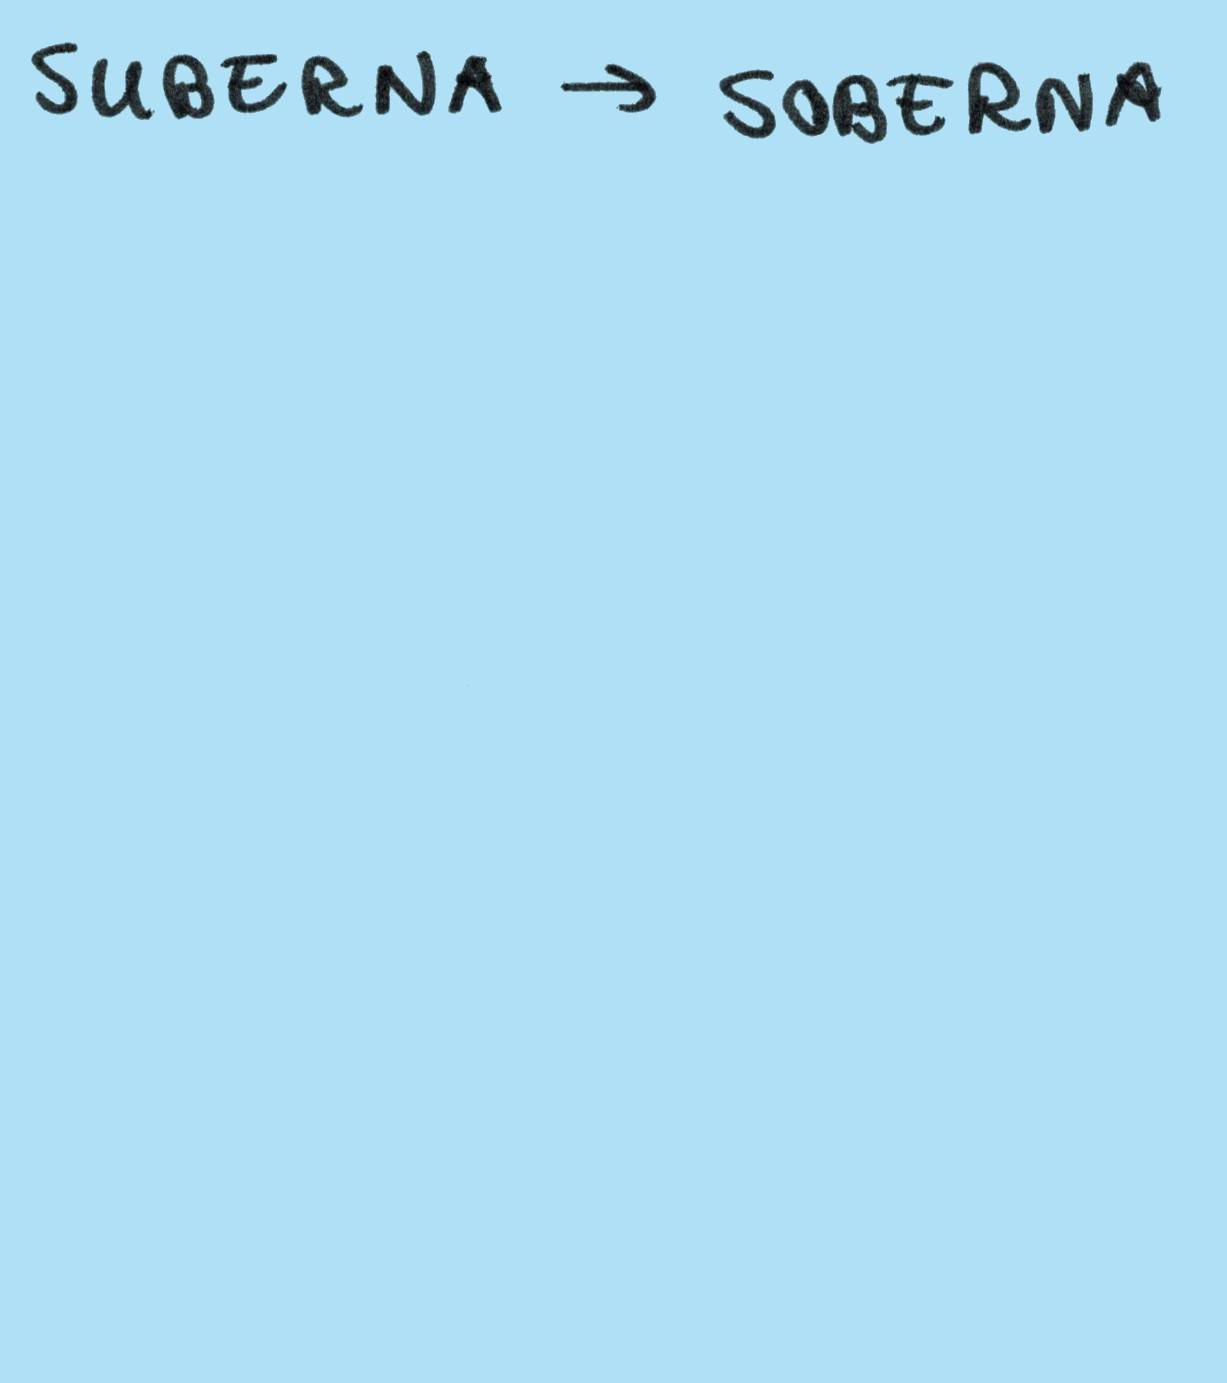 SUBERNA → SOBERNA